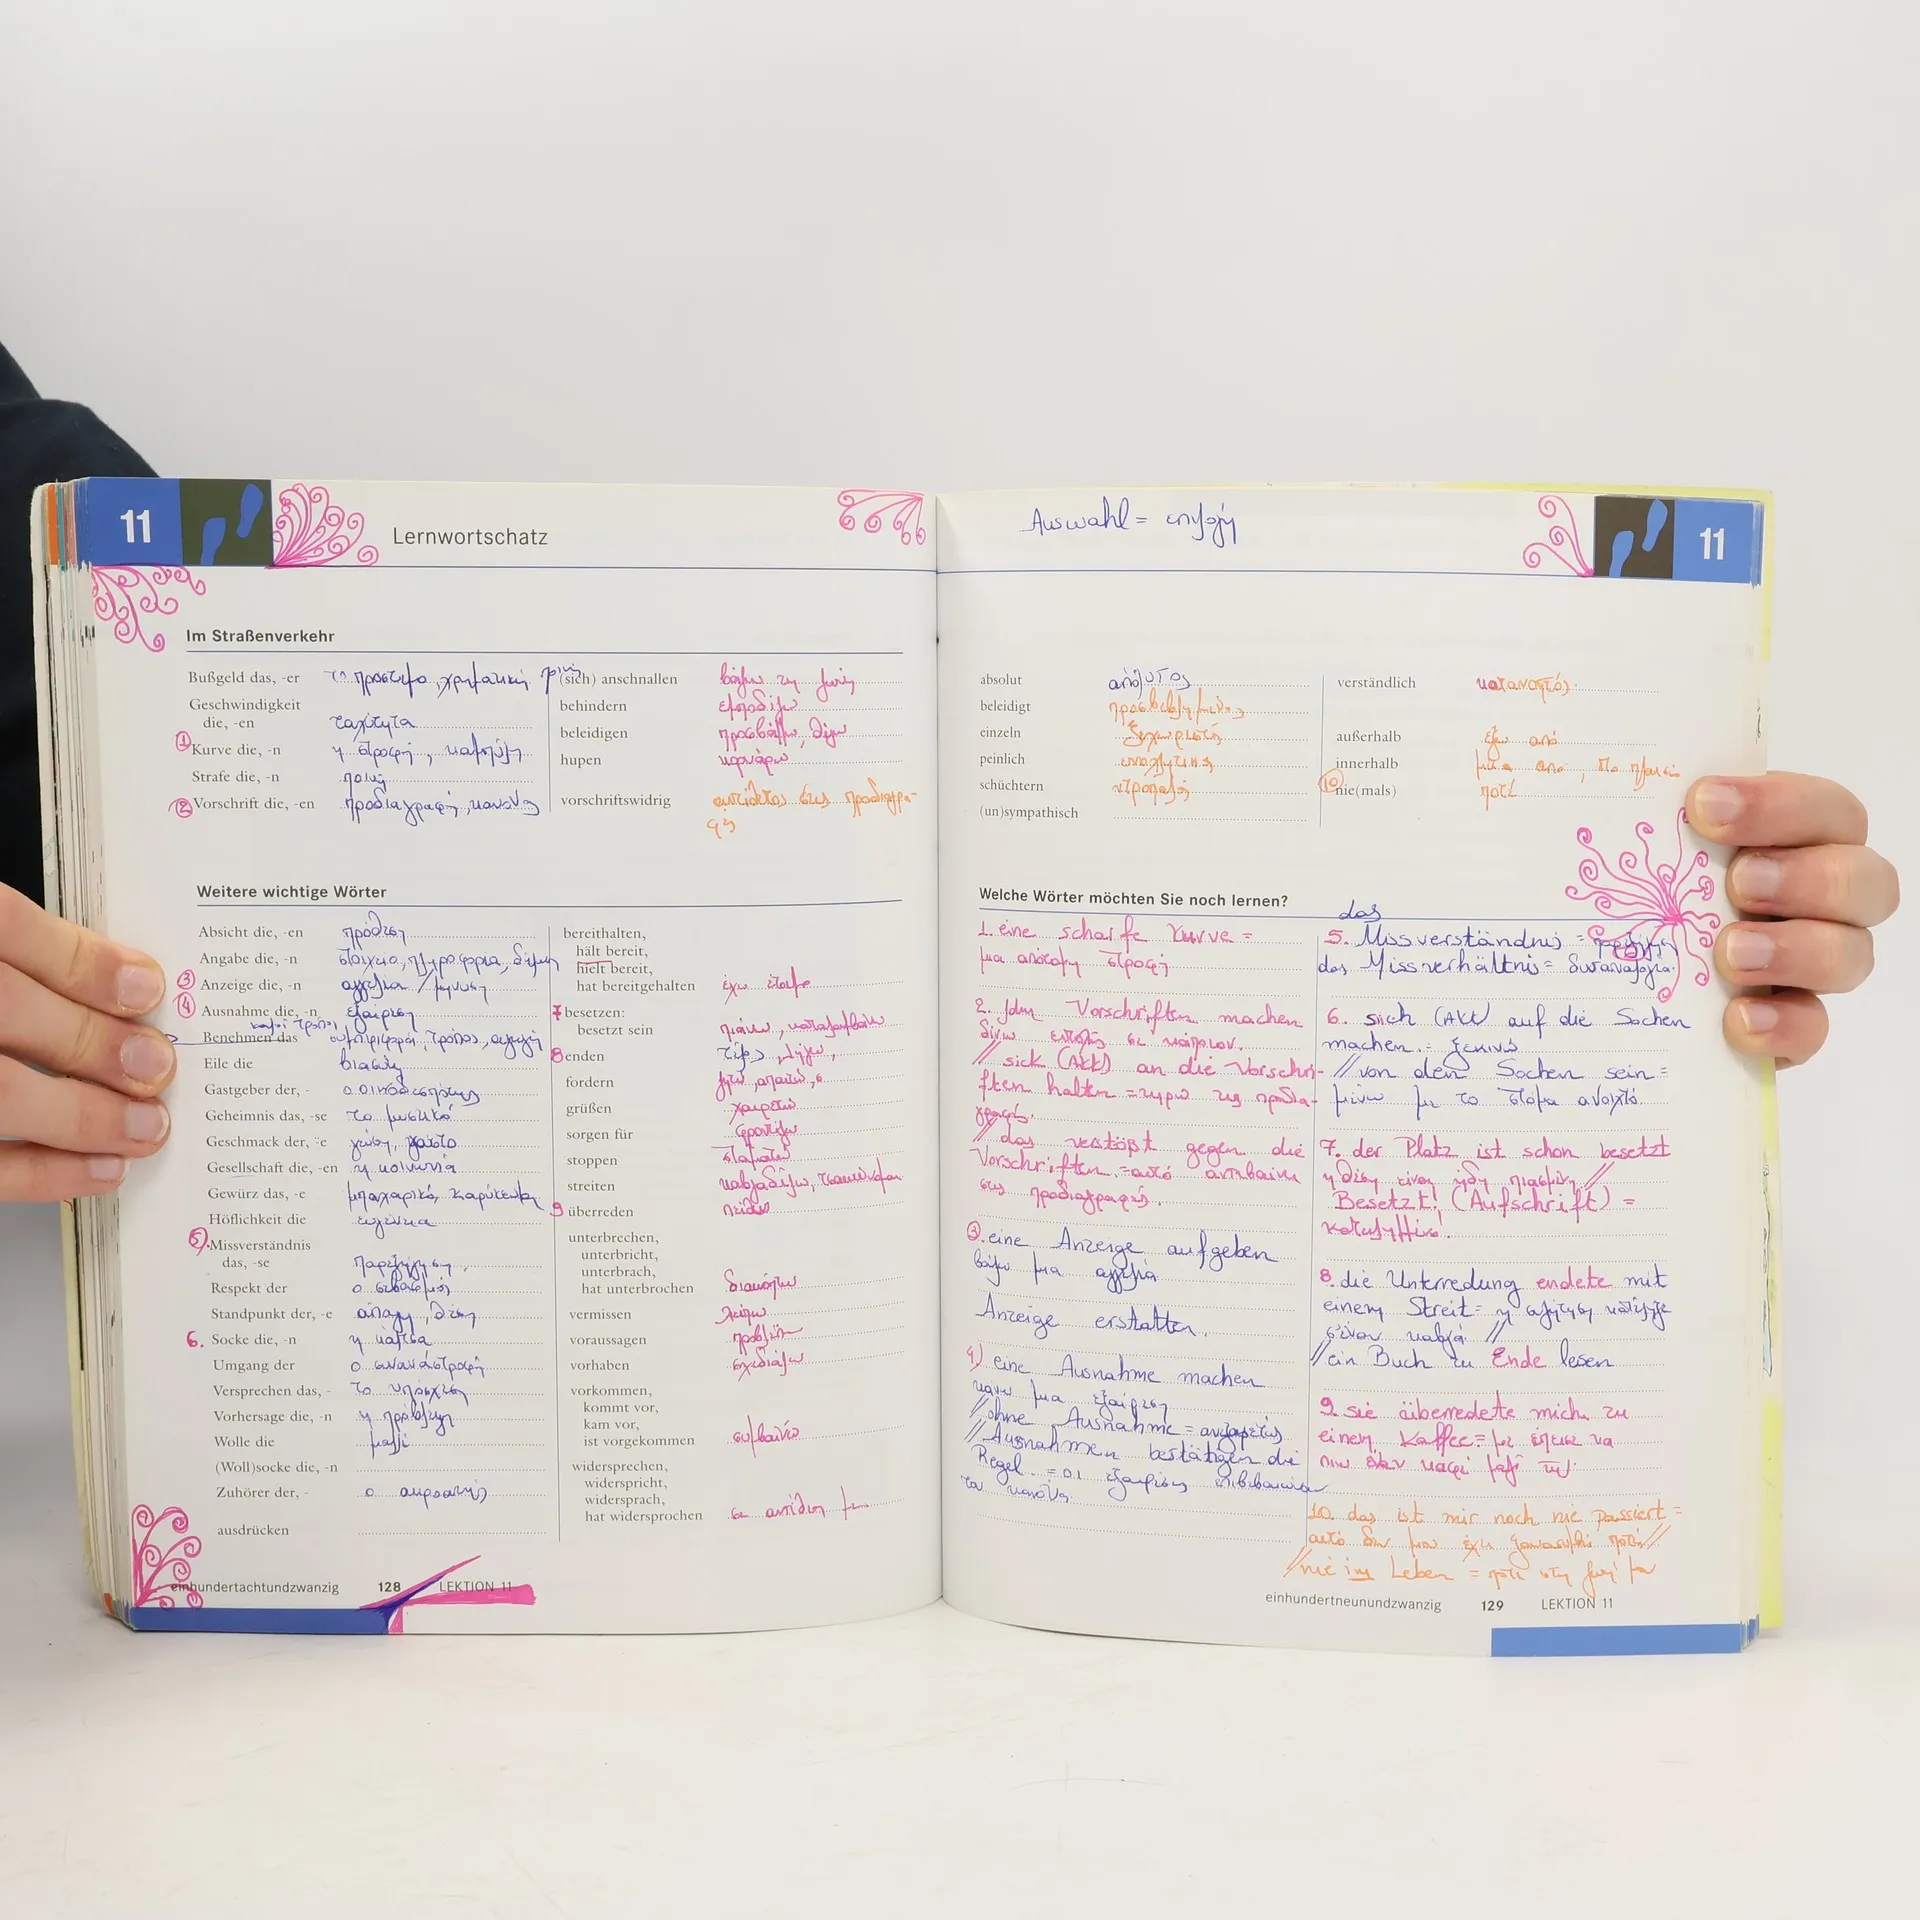 11
Lernwortschatz
Im Straßenverkehr
Bußgeld das, -er το πρόστιμο, χρηματική ποινή
Geschwindigkeit
die, -en ταχύτητα
1 Kurve die, -n η στροφή, καμπύλη
Strafe die, -n ποινή
2 Vorschrift die, -en προδιαγραφή, κανόνας
(sich) anschnallen βάζω τη ζώνη
behindern εμποδίζω
beleidigen προσβάλλω, θίγω
hupen κορνάρω
vorschriftswidrig αντίθετος στις προδιαγρα-
φές
Weitere wichtige Wörter
Absicht die, -en πρόθεση
Angabe die, -n στοιχείο, πληροφορία,
3 Anzeige die, -n αγγελία / μήνυση
4 Ausnahme die, -n εξαίρεση
καλοί τρόποι
Benehmen das συμπεριφορά, τρόπος, αγωγή
Eile die βιασύνη
Gastgeber der, - ο οικοδεσπότης
Geheimnis das, -se το μυστικό
Geschmack der, ¨-e γεύση, γούστο
Gesellschaft die, -en η κοινωνία
Gewürz das, -e μπαχαρικό, καρύκευμα
Höflichkeit die ευγένεια
5. Missverständnis
das, -se παρεξήγηση
Respekt der ο σεβασμός
Standpunkt der, -e άποψη, θέση
6. Socke die, -n η κάλτσα
Umgang der ο συναναστροφή
Versprechen das, - το υπόσχεση
Vorhersage die, -n η πρόβλεψη
Wolle die μαλλί
(Woll)socke die, -n
Zuhörer der, - ο ακροατής
ausdrücken
bereithalten,
hält bereit,
hielt bereit,
hat bereitgehalten έχω έτοιμο
7 besetzen: πιάνω, καταλαμβάνω
besetzt sein
8 enden τέλος, λήγω,
fordern ζητώ, απαιτώ,
grüßen χαιρετώ
sorgen für φροντίζω
stoppen σταματώ
streiten καβγαδίζω, τσακώνομαι
9 überreden πείθω
unterbrechen,
unterbricht,
unterbrach,
hat unterbrochen διακόπτω
vermissen λείπω
voraussagen προβλέπω
vorhaben σχεδιάζω
vorkommen,
kommt vor,
kam vor,
ist vorgekommen συμβαίνω
widersprechen,
widerspricht,
widersprach,
hat widersprochen σε αντίθεση με
einhundertachtundzwanzig 128 LEKTION 11
Auswahl = επιλογή
11
absolut απόλυτος
beleidigt προσβεβλημένος
einzeln ξεχωριστός
peinlich
schüchtern ντροπαλός
(un)sympathisch
verständlich κατανοητός
außerhalb έξω από
innerhalb μέσα από, το πλαίσιο
10 nie(mals) ποτέ
Welche Wörter möchten Sie noch lernen?
1. eine scharfe Kurve =
μια απότομη στροφή
2. jdm Vorschriften machen
δίνω εντολές σε κάποιον.
// sich (Akk) an die Vorschri-
ften halten = τηρώ τις προδια-
γραφές.
// das verstößt gegen die
Vorschriften = αυτό αντιβαίνει
στις προδιαγραφές.
3. eine Anzeige aufgeben
βάζω μια αγγελία
Anzeige erstatten.
4) eine Ausnahme machen
κάνω μια εξαίρεση
// ohne Ausnahme = ανεξαιρέτως
// Ausnahmen bestätigen die
Regel = οι εξαιρέσεις επιβεβαιώνουν
τον κανόνα
das
5. Missverständnis = παρεξήγηση
das Missverhältnis = δυσαναλογία.
6. sich (Akk) auf die Socken
machen = ξεκινώ
// von den Socken sein =
μένω με το στόμα ανοιχτό.
7. der Platz ist schon besetzt
η θέση είναι ήδη πιασμένη //
Besetzt! (Aufschrift) =
κατειλημμένο!
8. die Unterredung endete mit
einem Streit = η συζήτηση κατέληξε
σ'έναν καβγά. //
// ein Buch zu Ende lesen
9. sie überredete mich zu
einem Kaffee = με έπεισε να
πιω έναν καφέ μαζί της.
10. das ist mir noch nie passiert =
αυτό δεν μου έχει ξανασυμβεί ποτέ //
// nie im Leben = ποτέ στη ζωή μου
einhundertneunundzwanzig 129 LEKTION 11